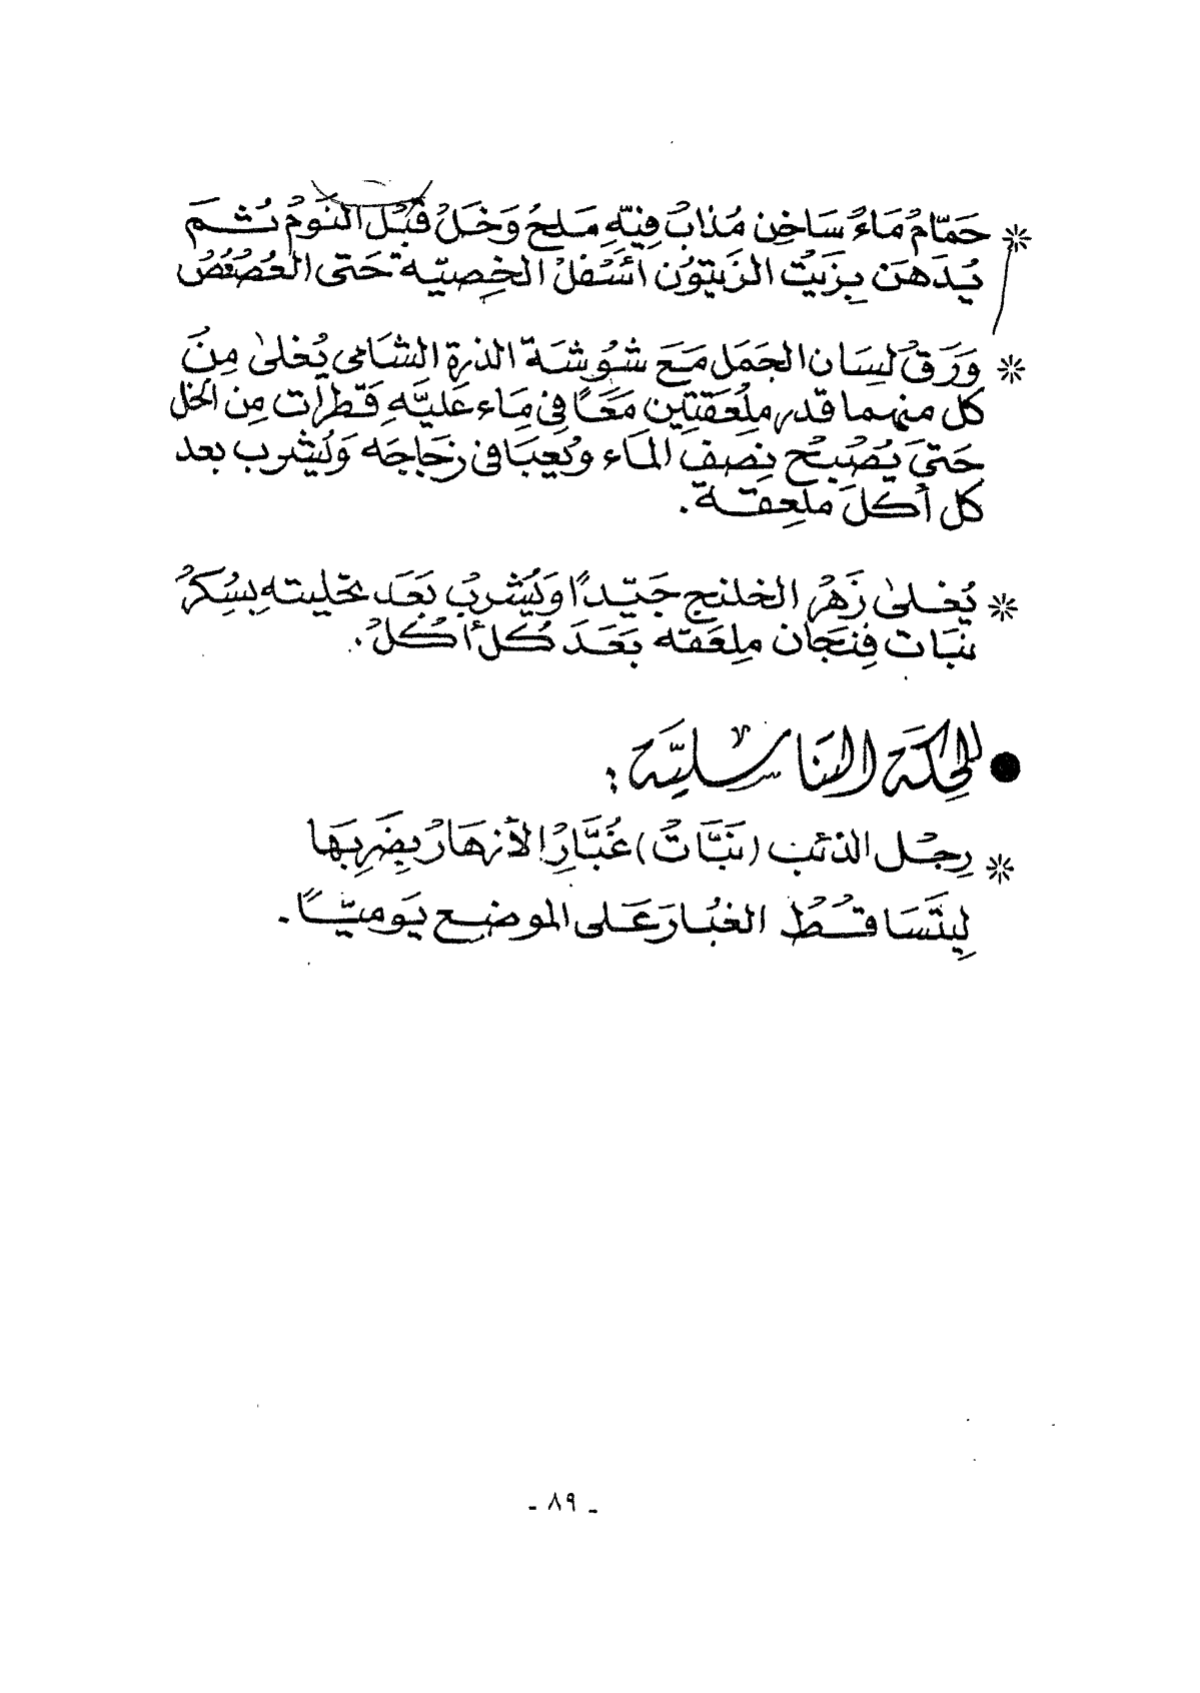 * حَمّامُ مَاءُ سَاخِن مُذابُ فِيّهِ مَلحُ وَخَلُ قَبُل النَومُ ثُـم
يُدَهَن بِزَيتُ الزَيتوُن اسَفلُ الخِصيّة حَتى العُصعُصُ
* وَرَقُ لسَان الجَمَل مَعَ شوُشَة الذرة الشَامى يُغلىٰ مِنَ
كل منهما قدر ملِعَقتِين مَعًا فى مِاء عَليَّهِ قَطرات مِن الخل
حَتىَ يُصُبحُ نِصَفُ الماء وُيَعبَا فى زجَاجَه وَيُشرب بعد
كل أكلَ ملعِقة .
* يُغلىٰ زَهَرُ الخلنج جَيّدًا وَيُشربُ بَعَد تحليته بِسُكرُ
نبَات فِنجَان ملِعَقه بَعَدَ كُل أكُلُ .
● الحِكة التناسليّة :
* رِجُل الذئب ( نَبَّاتُ ) غُبَّارِ الأزهَارُ بِضَربِهَا
لِيتَسَاقُطُ الغبُارَ عَلى الموضع يَوميًّا .
- ٨٩ -